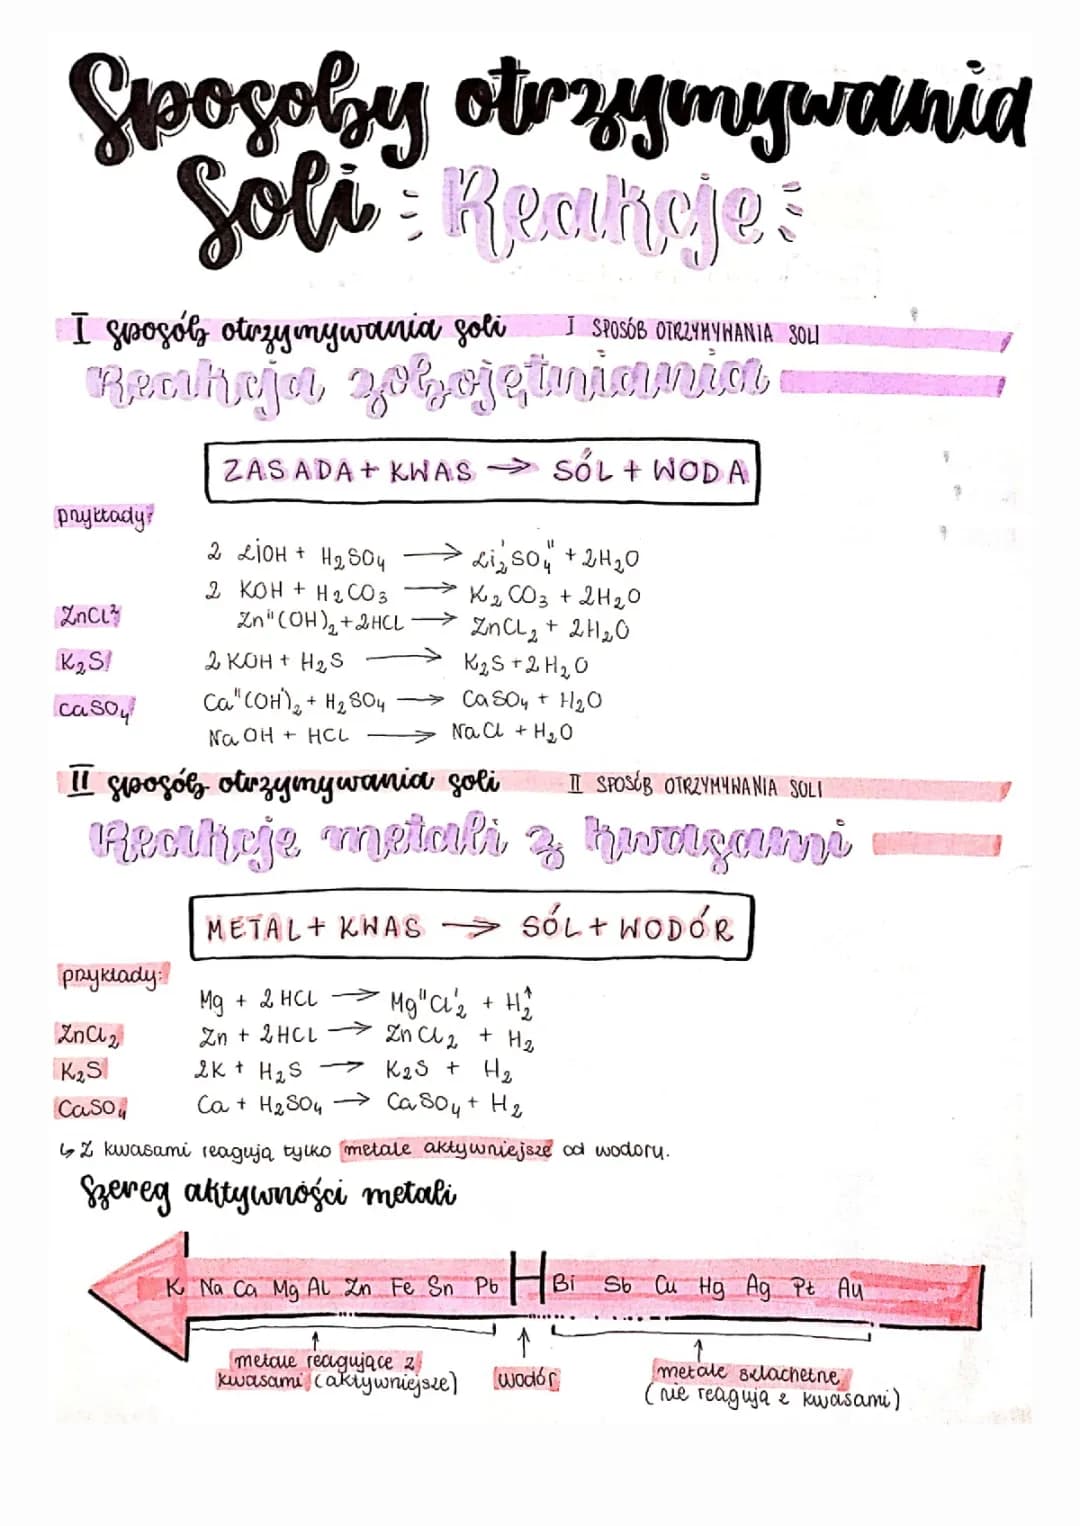 Sposoby otrzymywania
Soli Reakcje
I sposób otrzymywania soli I SPOSÓB OTRZYMYWANIA SOLI
Reakcja zobojętniania
ZASADA + KWAS → SÓL + WODA
przykłady:
2 LiOH + H₂SO₄ → Li₂'SO₄" + 2H₂O
2 KOH + H₂CO₃ → K₂CO₃ + 2H₂O
ZnCl² Zn"(OH)₂ + 2HCL → ZnCL₂ + 2H₂O
K₂S 2 KOH + H₂S → K₂S + 2H₂O
CaSO₄ Ca"(OH')₂ + H₂SO₄ → CaSO₄ + H₂O
NaOH + HCL → NaCl + H₂O
II sposób otrzymywania soli II SPOSÓB OTRZYMYWANIA SOLI
Reakcje metali z kwasami
METAL + KWAS → SÓL + WODÓR
przykłady:
Mg + 2 HCL → Mg"Cl'₂ + H₂↑
ZnCl₂ Zn + 2HCL → ZnCl₂ + H₂
K₂S 2K + H₂S → K₂S + H₂
CaSO₄ Ca + H₂SO₄ → CaSO₄ + H₂
↳ Z kwasami reagują tylko metale aktywniejsze od wodoru.
Szereg aktywności metali
K Na Ca Mg AL Zn Fe Sn Pb H Bi Sb Cu Hg Ag Pt Au
metale reagujące z kwasami (aktywniejsze)
wodór
metale szlachetne
(nie reagują z kwasami)